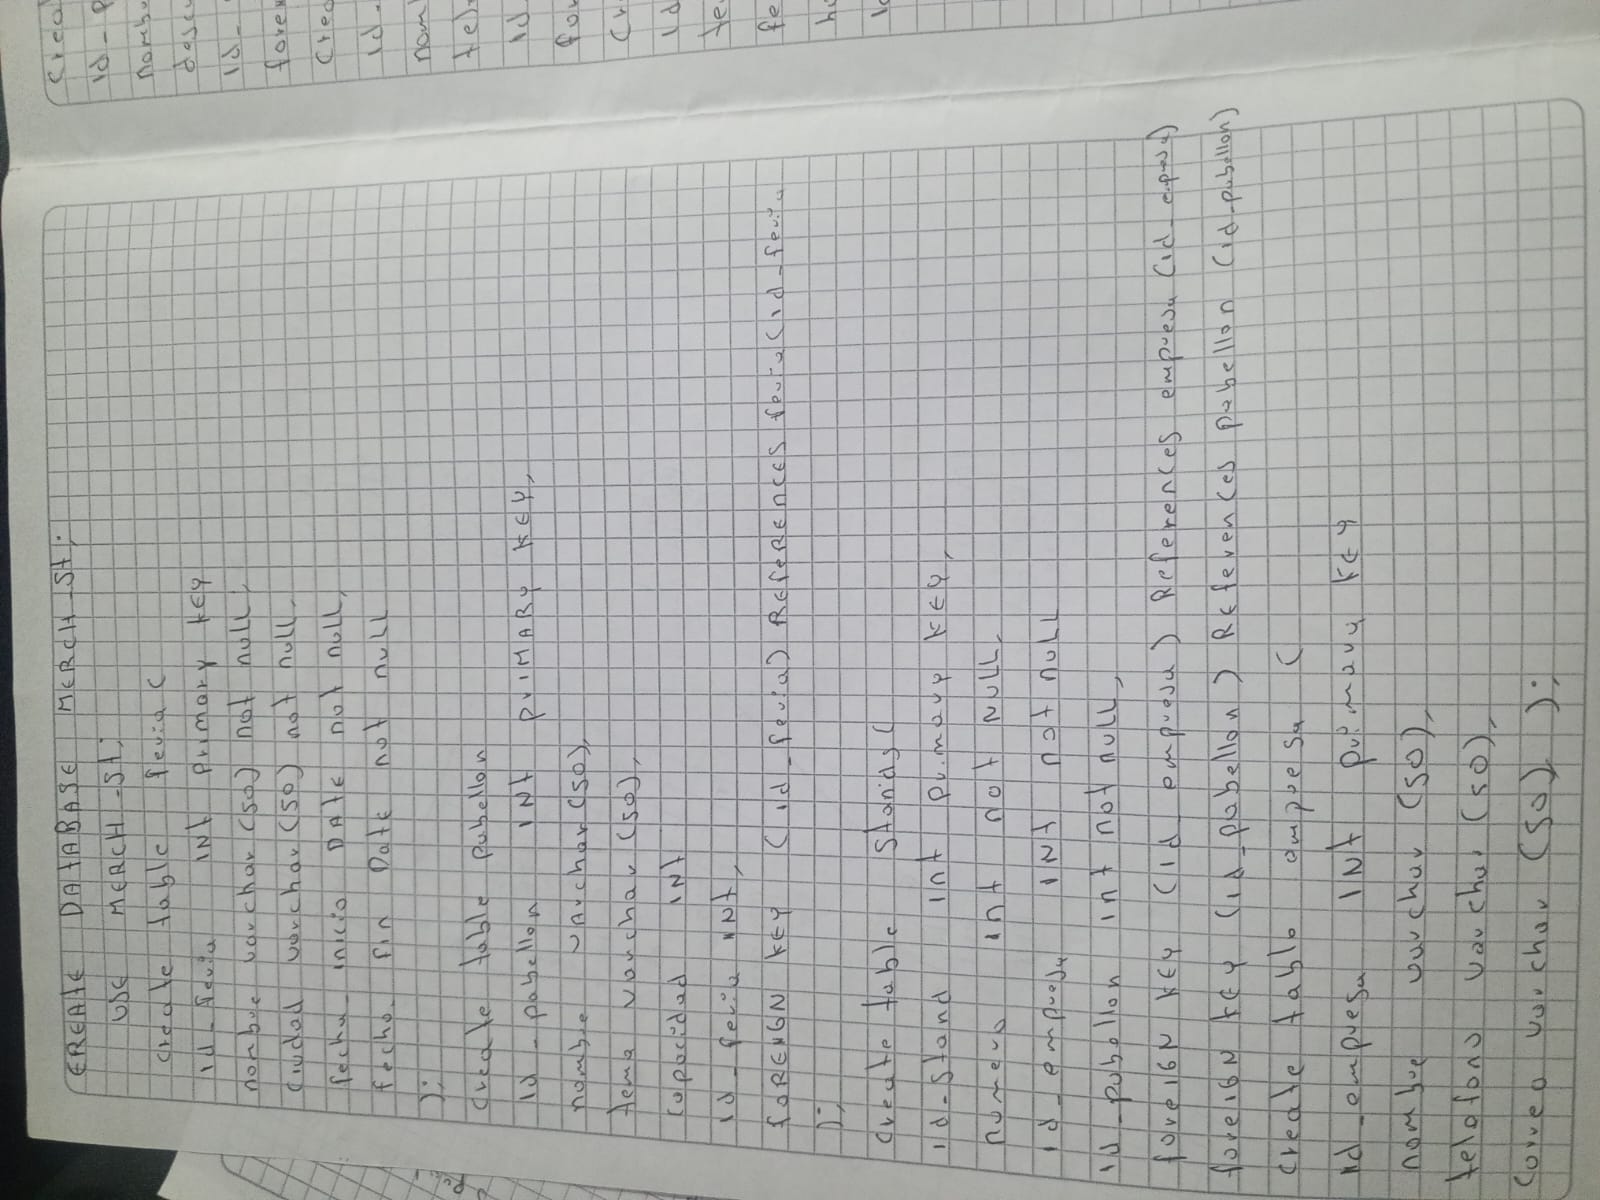 CREATE DATABASE MERCH_St;
USE MERCH_St;
create table feria (
id_feria INt primary KEY
nombre varchar(50) not null,
Ciudad varchar(50) not null,
fecha_inicio DAtE not null,
fecha_fin DatE not null
);
Create table pabellon
id_pabellon INt prIMARY KEY,
nombre varchar(50),
tema varchar(50),
Capacidad INt
id_feria INt,
FOREIGN KEY (id_feria) REFERENCES feria(id_feria
);
create table Stands(
id_Stand int primary KEY,
numero int not NULL,
id_empresa INt not null
id_pabellon int not null,
foreIGN KEY (id_empresa) References empresa (id_empresa)
foreIGN KEY (id_pabellon) References pabellon (id_pabellon)
Create table empresa (
id_empresa INt primary KEY
nombre varchar (50),
telefono varchar (50),
Correo varchar (50) );
Crea
id_p
nomb
desc
id_
fore
Crea
id_
nom
tele
id
for
Cr
id
te
fe